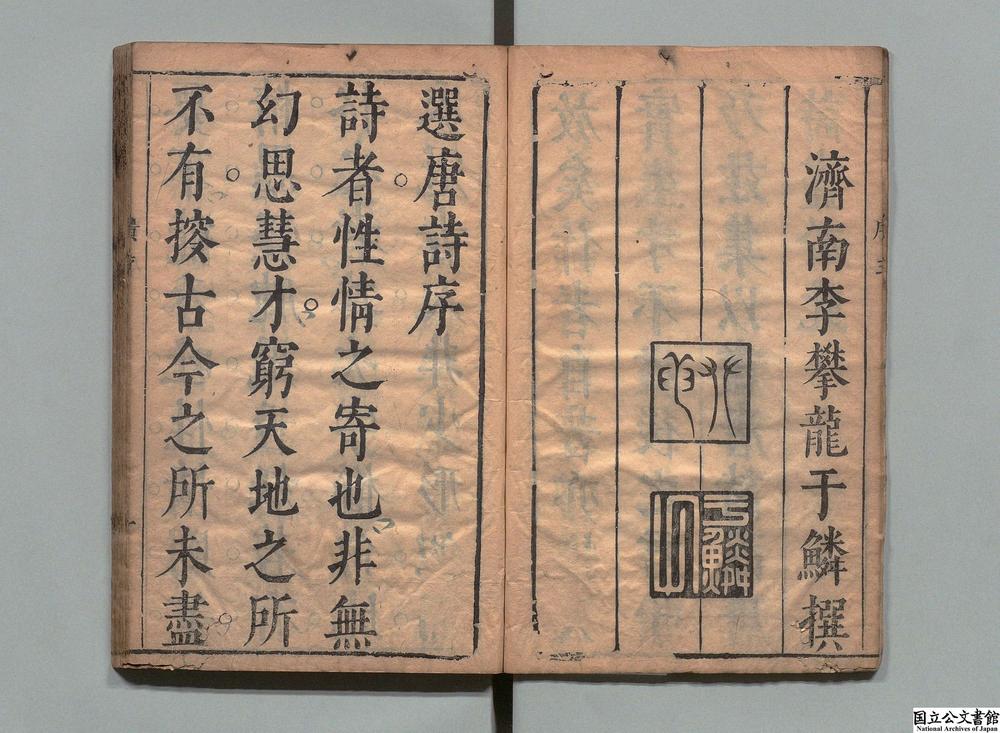 濟南李攀龍于鱗撰
于鱗
選唐詩序
詩者性情之寄也非無
幻思慧才窮天地之所
不有㨙古今之所未盡
国立公文書館
National Archives of Japan